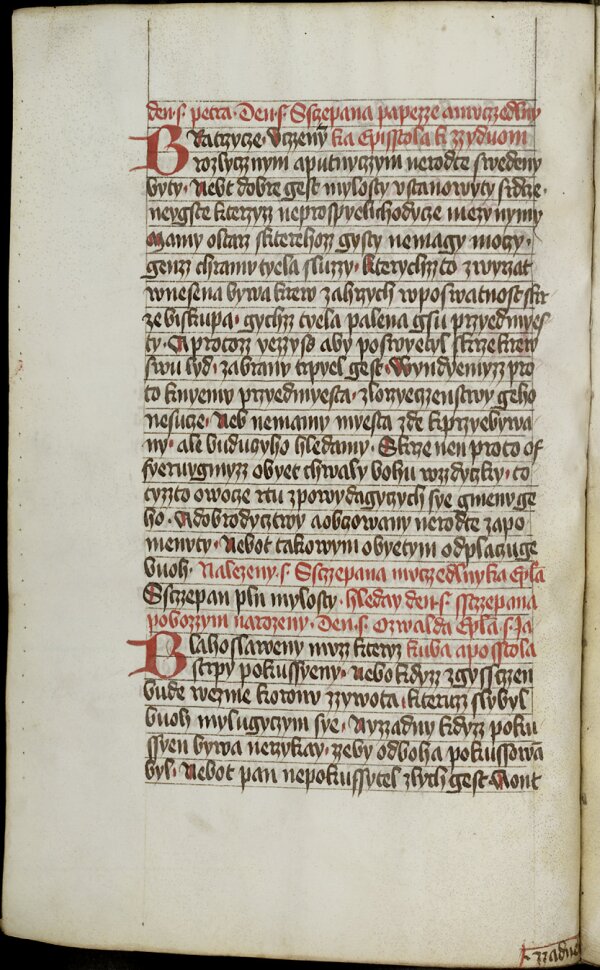 den .s. petra. Den .s. Sszczepana papezze amuczedlny
BRatrzycze. Vczenȳ ka Episstola k zzyduom
rozlycznym aputnyczym nerodte swedeny
byty. Nebt dobre gest mylosty vstanowyty srdcze.
neygste kterzyz neprospyeli chodycze wezynymy
Mamy oltarz skterehoz gysty nemagy moczy.
genz chramu tyela sluzzy. kterychzto zwyrzat
wnesena bywa krew zahrzych wposwatnost skr
ze biskupa. gychz tyela palena gsu przyedmyes
ty. A protoz yezzyss aby poswyetyl skrze krew
swu lyd. zabrany trpyel gest. Wyndyemyzz pro
to knyemu przyedmyesta. zlorzyeczenstwy geho
nesucze. Neb nemamy myesta zde kprzyebywa
ny. ale buduczyho hledamy. Skrze nen proto of
fyerugmyzz obyet chwaly bohu wzzdyczky. to
czyzto owocze rtu zpowydagyczych sye gmeny ge
ho. Adobrodyczstwy aobczowany nerodte zapo
menuty. Nebot takowym obyetym odplaczuge
buoh. Nalezeny .s. Sszczepana muczedlnyka Eplā
Sszczepan pln mylosty. hleday den .s. sszczepana
pobozzym narozeny. Den .s. Ozwalda Eplā .s. Ja
BLahoslaweny muz kteryz kuba aposstola
strpy pokussyeny. nebo kdyz zgyssczen
bude wezme koronu zzywota. kteruz slybyl
buoh mylugyczym sye. Nyzzadny kdyz poku
ssyen bywa nerzykay. zzeby odboha pokussowā
byl. Nebot pan nepokussytel zlych gest. Aont